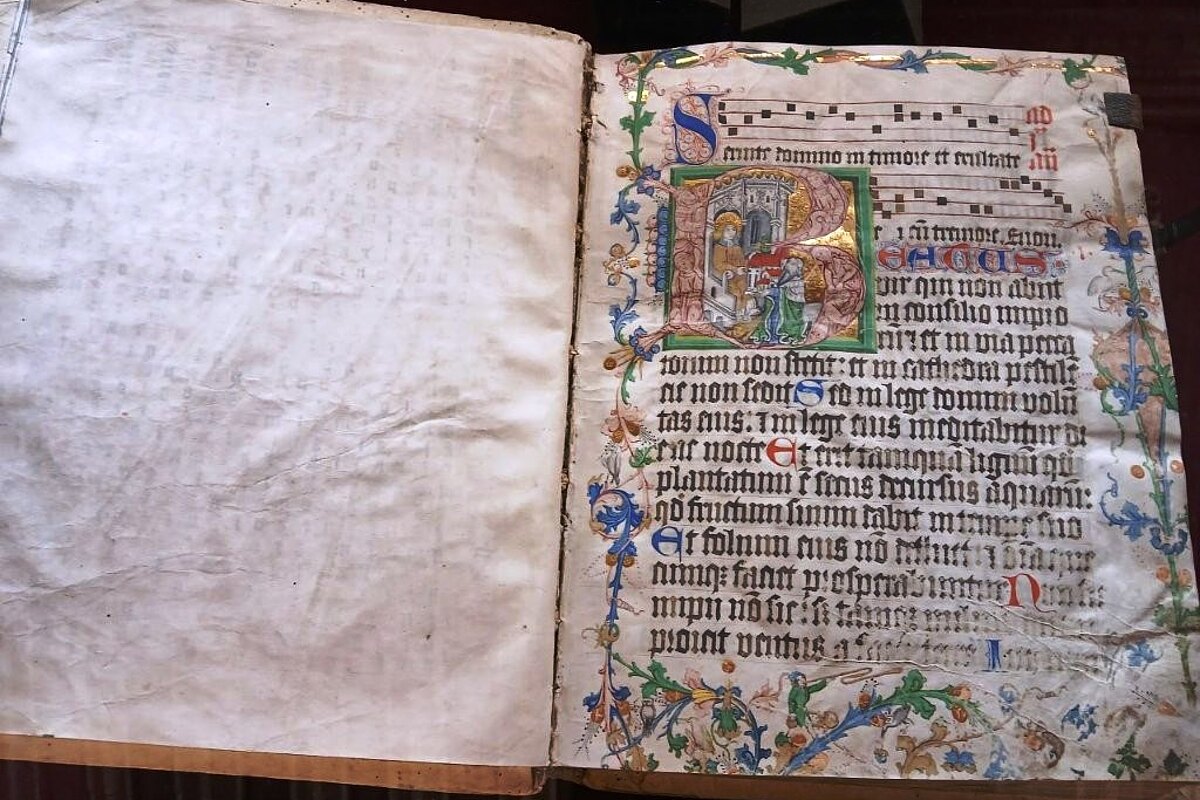 Seruite domino in timore et exultate
ei cū tremore. Euou.
BEATUS
vir qui non abiit
in consilio impio
rum et in via pecca
torum non stetit: et in cathedra pestilē
tie non sedit Sed in lege domini volū
tas eius: in lege eius meditabitur di
e ac nocte Et erit tamquā lignū qd̄
plantatum ē secus decursus aquarū:
qd̄ fructum suum dabit in tempore suo
Et folium eius nō defluet: et
cumq; faciet prosperabuntur Non sic
impii nō sic: sed tamquam
proicit ventus a